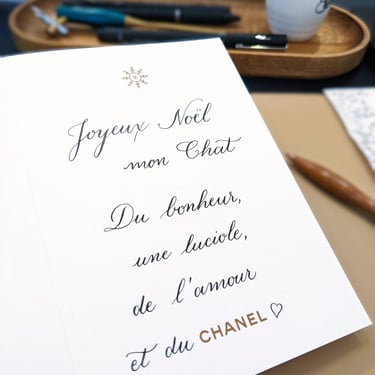 Joyeux Noël
mon Chat
Du bonheur,
une luciole,
de l'amour
et du CHANEL ♡